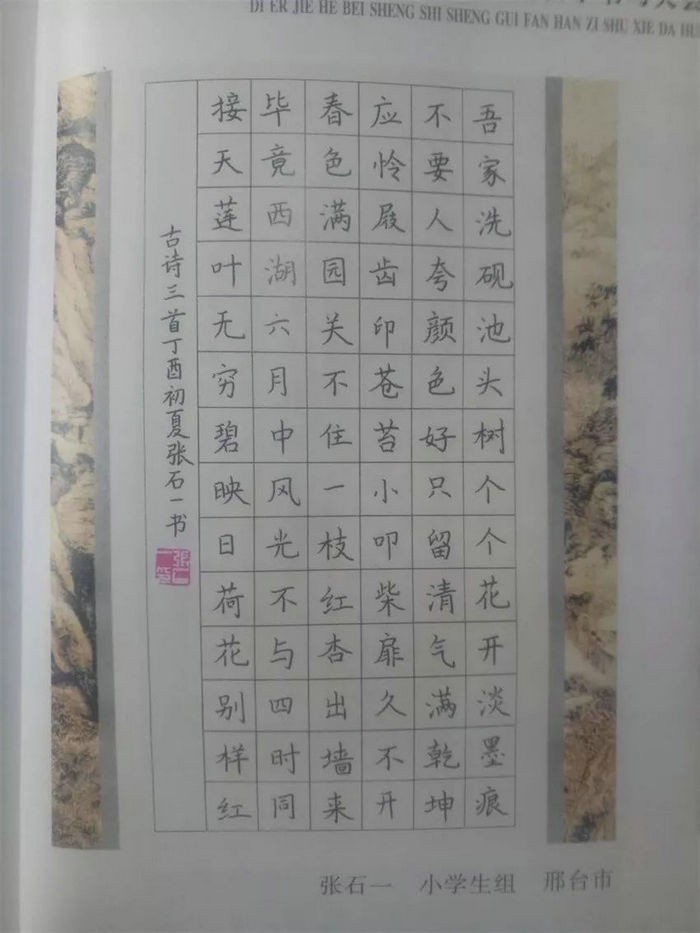 DI ER JIE HE BEI SHENG SHI SHENG GUI FAN HAN ZI SHU XIE DA HU
吾家洗砚池头树个个花开淡墨痕
不要人夸颜色好只留清气满乾坤
应怜屐齿印苍苔小叩柴扉久不开
春色满园关不住一枝红杏出墙来
毕竟西湖六月中风光不与四时同
接天莲叶无穷碧映日荷花别样红
古诗三首丁酉初夏张石一书
张石一 小学生组 邢台市